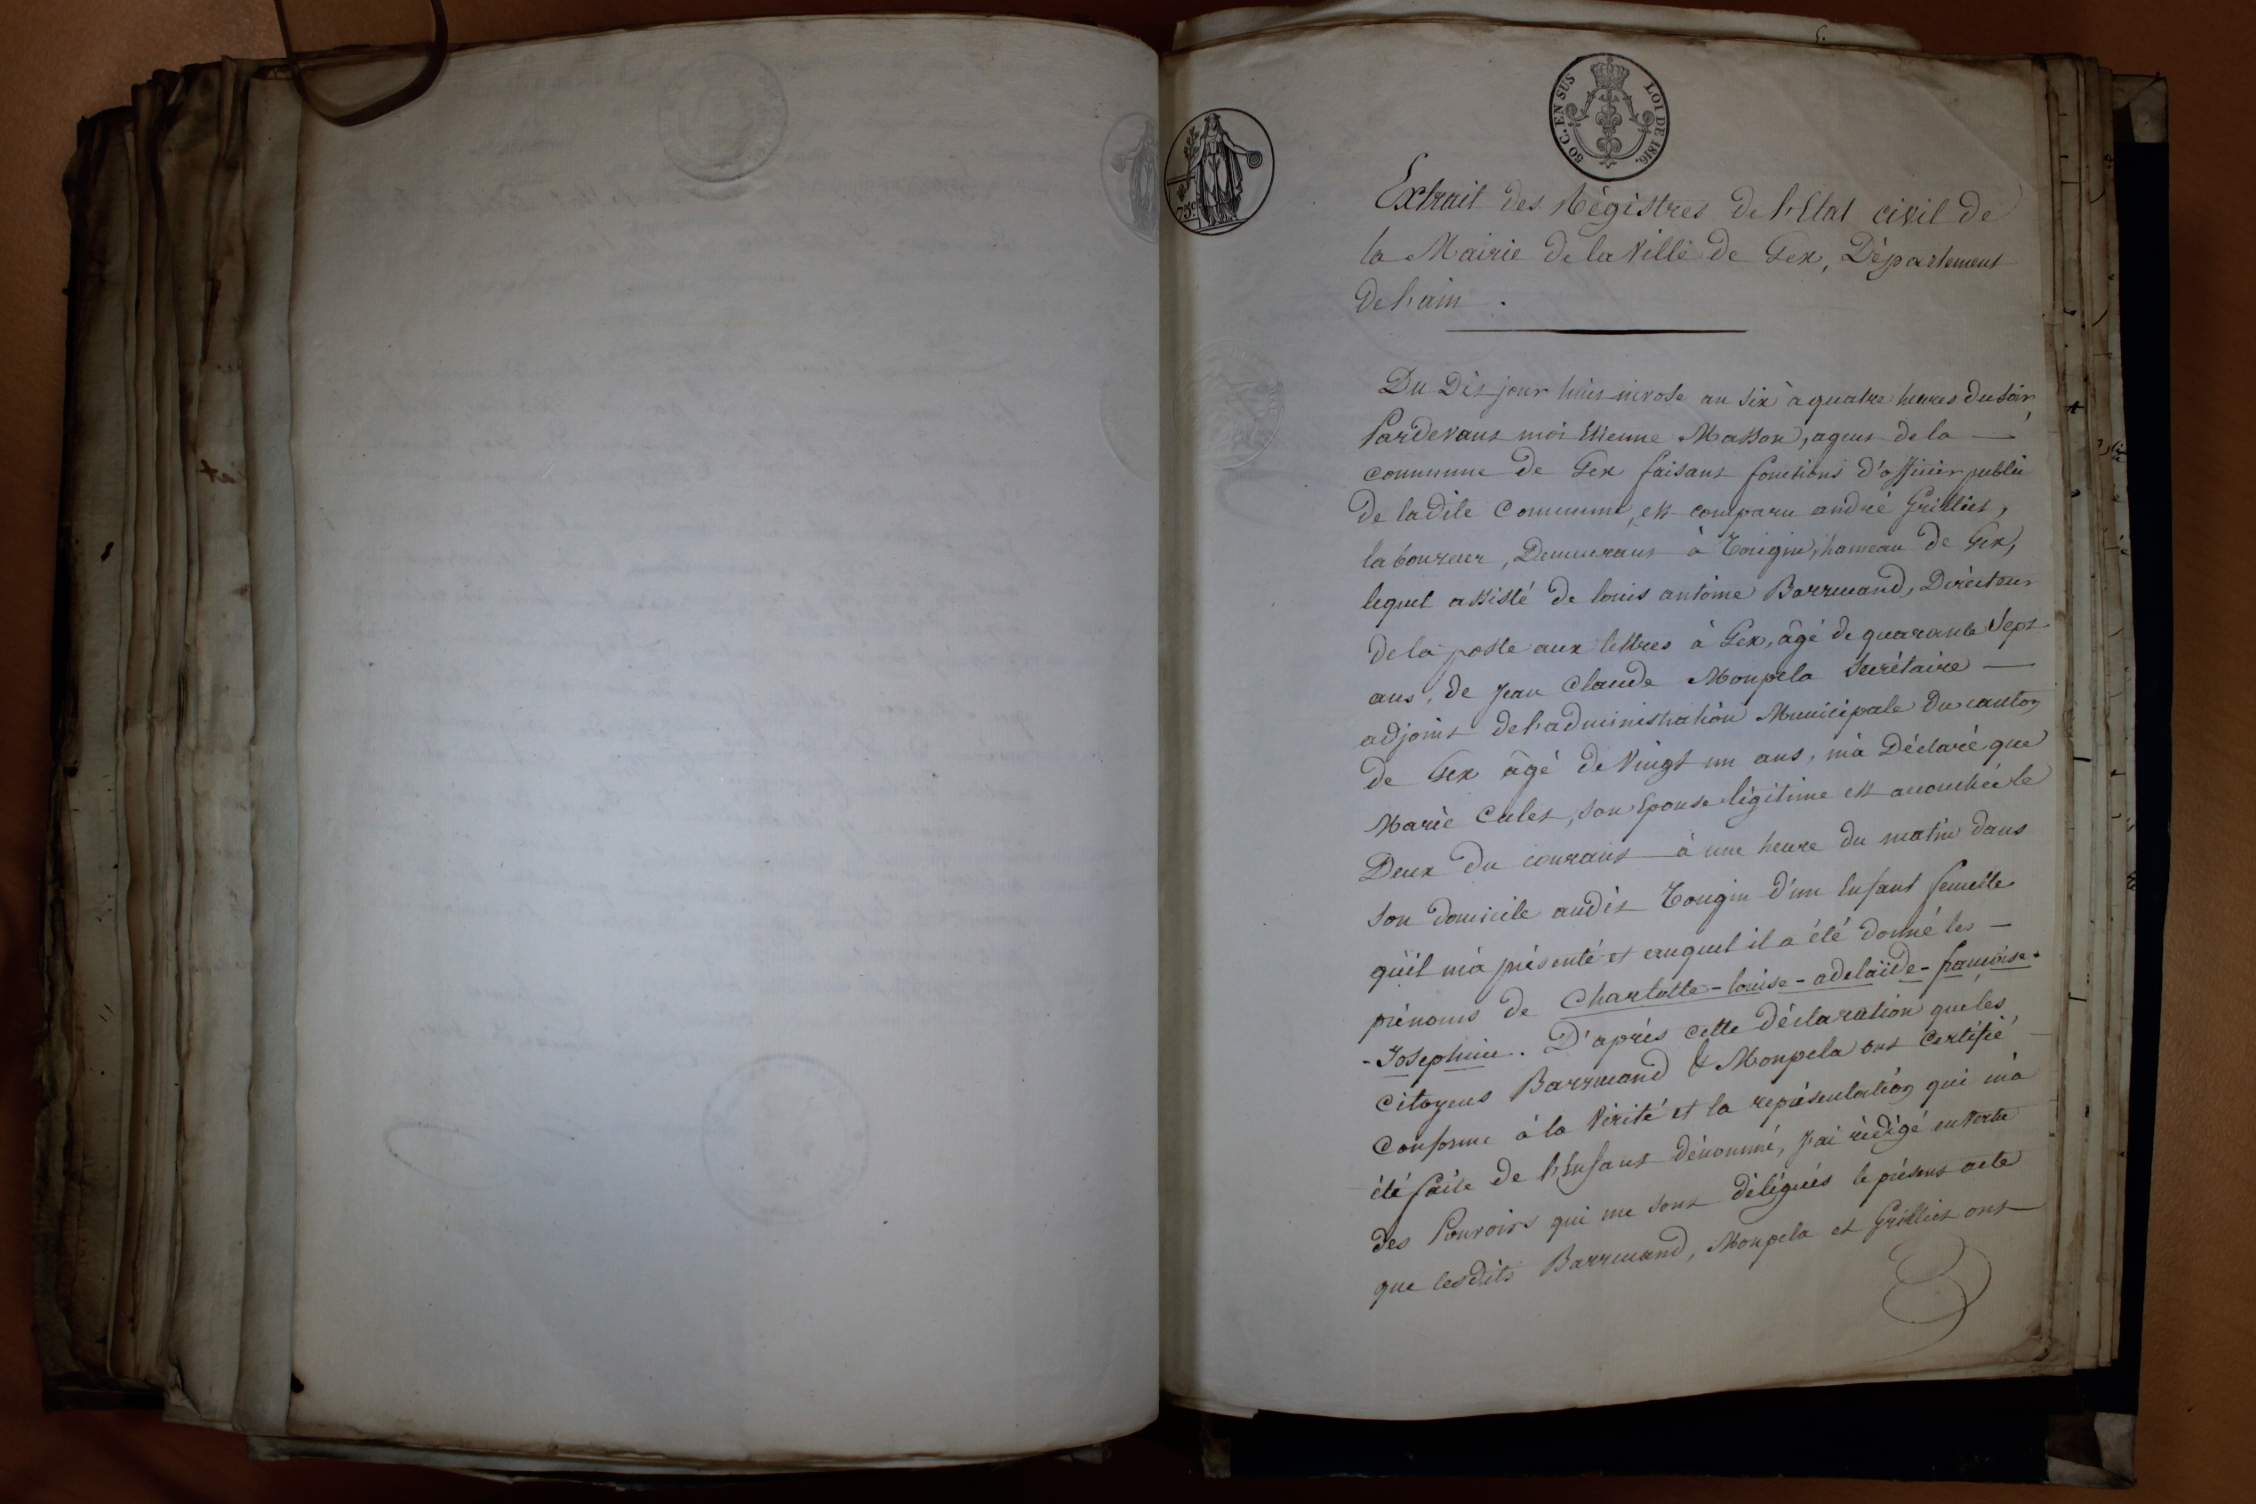 50 C. EN SUS LOI DE 1816.
75c
Extrait des Régistres de l'Etat civil de
la Mairie de la Ville de Gex, Département
de l'ain.
Du Dix jour huit nivose an six à quatre heures du soir
Pardevant moi Etienne Masson, agent de la
commune de Gex faisant fonctions d'officier public
de la dite Commune, est comparu andré Grilliet,
laboureur, Demeurant à Tougin, hameau de Gex,
lequel assisté de louis antoine Barrmand, Directeur
de la poste aux lettres à Gex, âgé de quarante sept
ans, de Jean Claude Monpela Secrétaire
adjoint de l'administration Municipale du canton
de Gex âgé de vingt un ans, m'a Déclaré que
Marie Culet, son Epouse légitime est accouchée le
Deux du courant à une heure du matin dans
son domicile audit Tougin d'un Enfant femelle
qu'il m'a présenté et auquel il a été donné les
prénoms de Charlotte-louise-adelaïde-françoise-
-Josephine. D'après cette déclaration que les
Citoyens Barrmand & Monpela ont certifié
Conforme à la Vérité et la représentation qui m'a
été faite de l'Enfant dénommé, J'ai rédigé en vertu
des Pouvoirs qui me sont délégués le présent acte
que lesdits Barrmand, Monpela et Grilliet ont